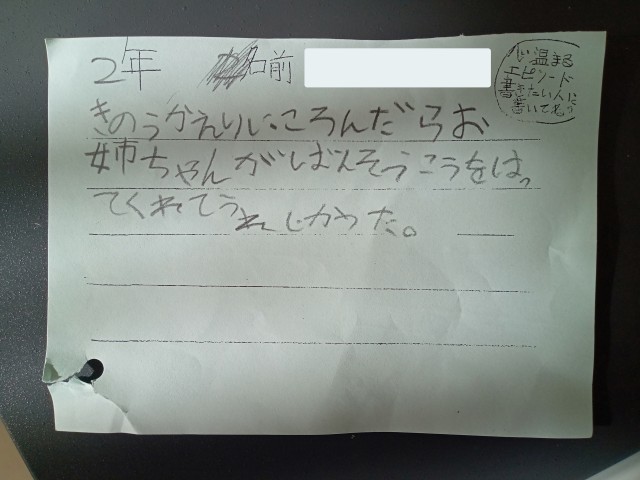 2年 名前
心温まる
エピソード
書きたい人に
書いてね。
きのうかえりにころんだらお
姉ちゃんがばんそうこうをはっ
てくれてうれしかった。